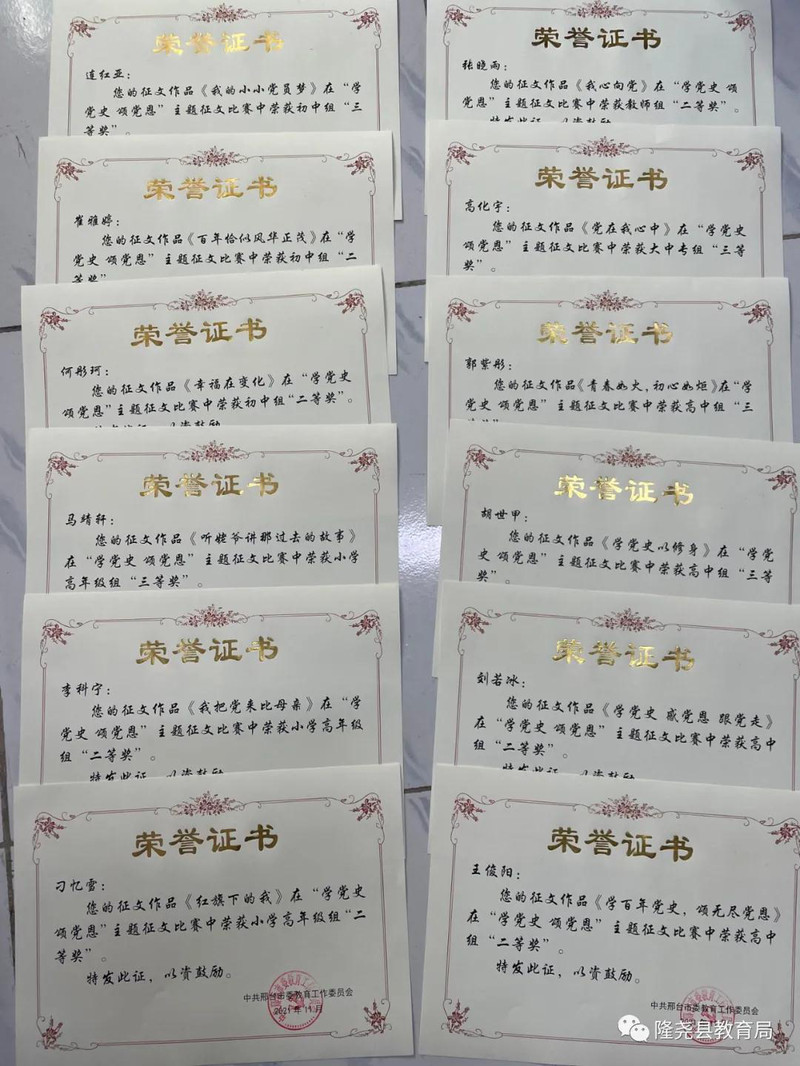 荣誉证书
连红亚：
您的征文作品《我的小小党员梦》在“学
党史 颂党恩”主题征文比赛中荣获初中组“三
等奖”。
荣誉证书
崔雅婷：
您的征文作品《百年恰似风华正茂》在“学
党史 颂党恩”主题征文比赛中荣获初中组“二
等奖”
荣誉证书
何彤珂：
您的征文作品《幸福在变化》在“学党史
颂党恩”主题征文比赛中荣获初中组“二等奖”。
荣誉证书
马婧轩：
您的征文作品《听姥爷讲那过去的故事》
在“学党史 颂党恩”主题征文比赛中荣获小学
高年级组“三等奖”。
荣誉证书
李科宁：
您的征文作品《我把党来比母亲》在“学
党史 颂党恩”主题征文比赛中荣获小学高年级
组“二等奖”。
特发此证，以资鼓励
荣誉证书
刁忆雪：
您的征文作品《红旗下的我》在“学党史
颂党恩”主题征文比赛中荣获小学高年级组“二
等奖”。
特发此证，以资鼓励。
中共邢台市委教育工作委员会
2021年11月
荣誉证书
张晓雨：
您的征文作品《我心向党》在“学党史 颂
党恩”主题征文比赛中荣获教师组“二等奖”。
特发此证，以资鼓励
荣誉证书
高化宇：
您的征文作品《党在我心中》在“学党史
颂党恩”主题征文比赛中荣获大中专组“三等
奖”。
荣誉证书
郭紫彤：
您的征文作品《青春如火，初心如炬》在“学
党史 颂党恩”主题征文比赛中荣获高中组“三
荣誉证书
胡世甲：
您的征文作品《学党史以修身》在“学党
史 颂党恩”主题征文比赛中荣获高中组“三等
奖”。
荣誉证书
刘若冰：
您的征文作品《学党史 感党恩 跟党走》
在“学党史 颂党恩”主题征文比赛中荣获高中
组“二等奖”。
特发此证，以资鼓励
荣誉证书
王俊阳：
您的征文作品《学百年党史，颂无尽党恩》
在“学党史 颂党恩”主题征文比赛中荣获高中
组“二等奖”。
特发此证，以资鼓励。
中共邢台市委教育工作委员会
隆尧县教育局